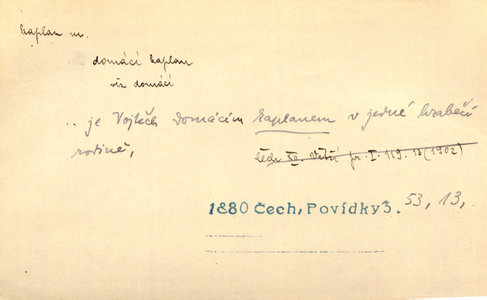 kaplan m.
domácí kaplan
viz domácí
.. je Vojtěch domácím kaplanem v jedné hraběcí
rodině,
čech XII. pr. I. 119. 13 (1902)
1880 Čech, Povídky 3. 53, 13,